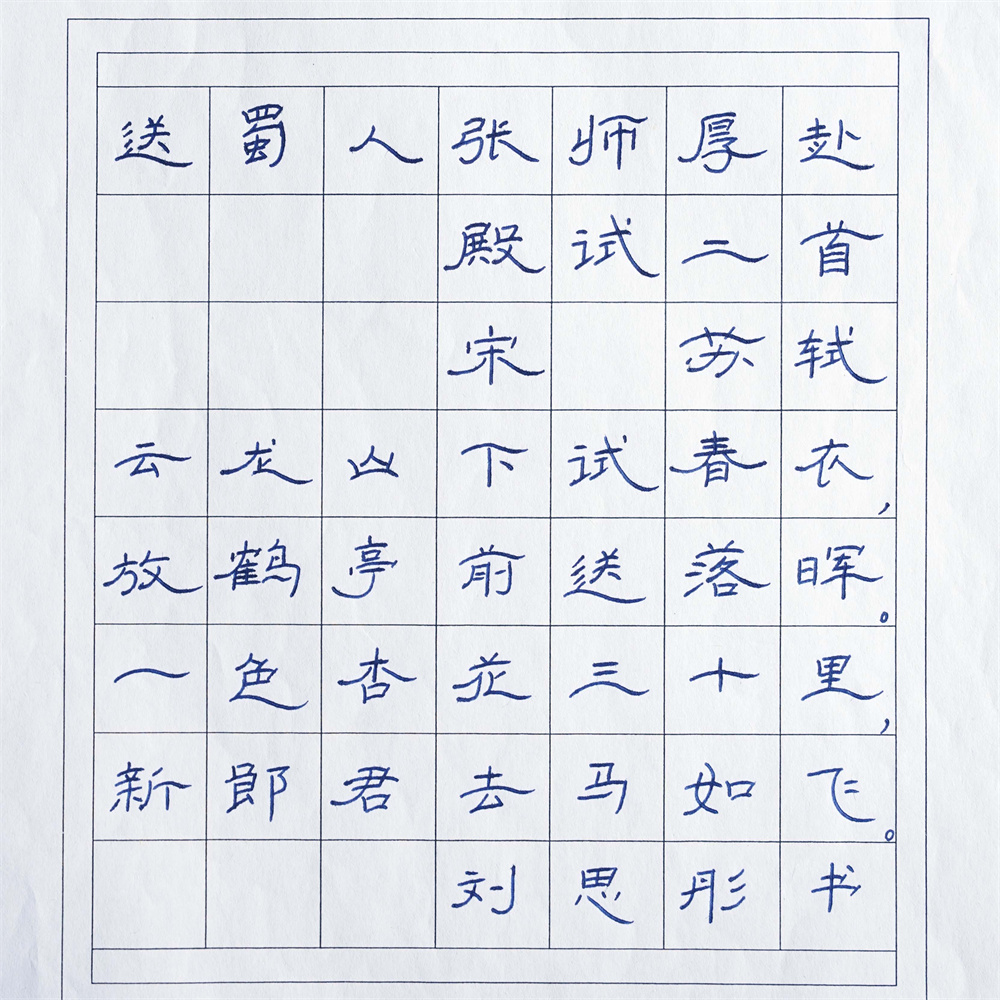 送蜀人张师厚赴
殿试二首
宋 苏轼
云龙山下试春衣,
放鹤亭前送落晖。
一色杏花三十里,
新郎君去马如飞。
刘思彤书